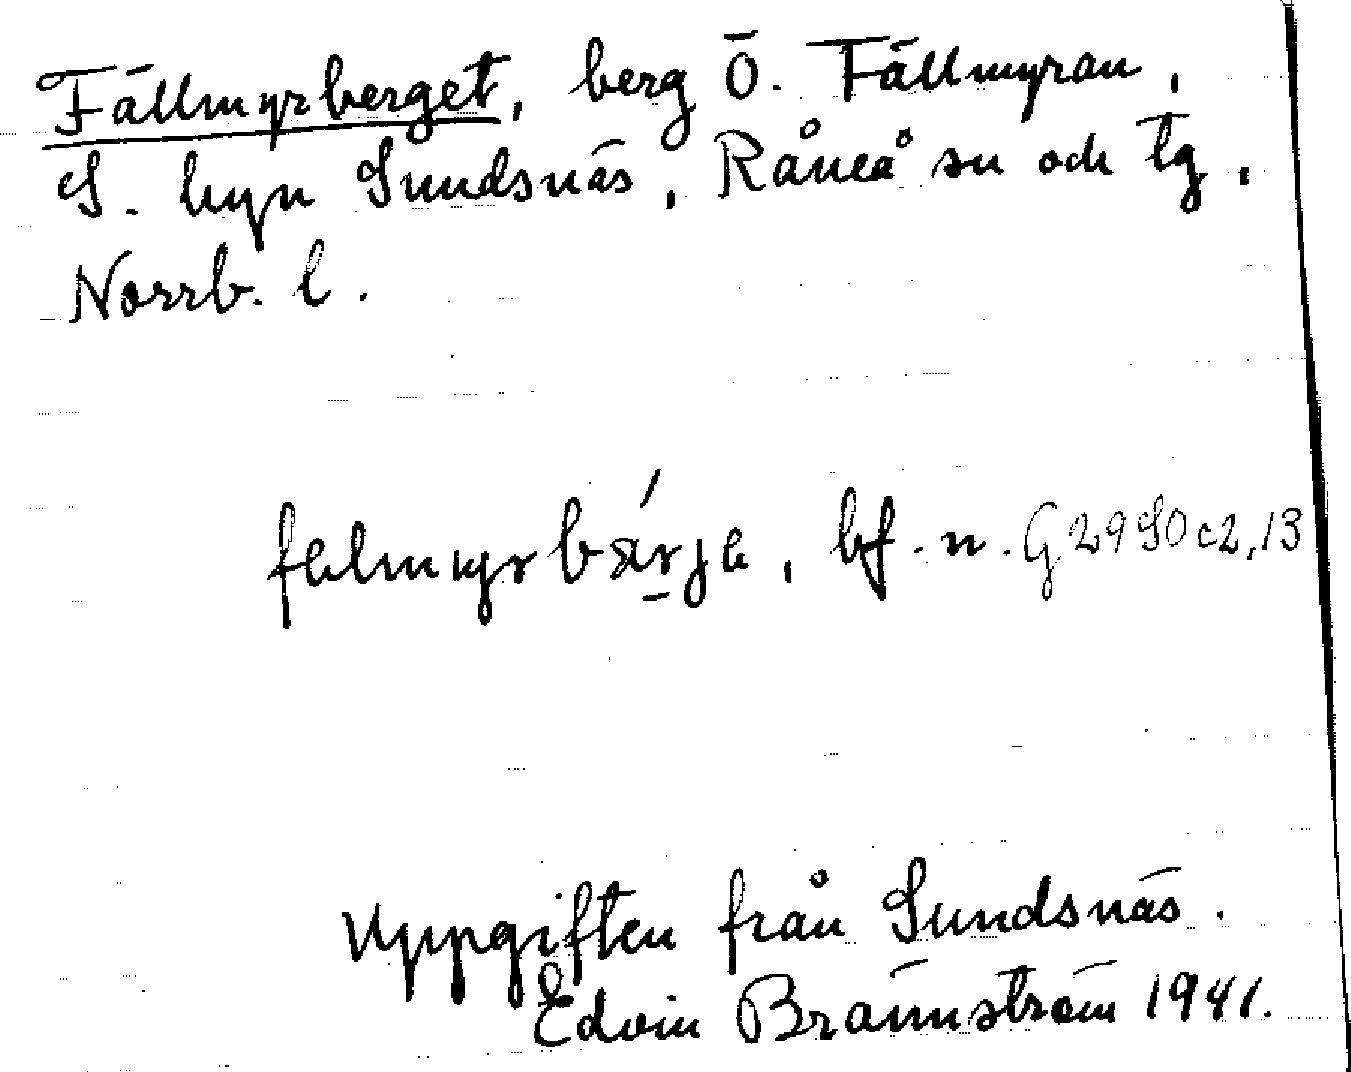 Fällmyrberget, berg Ö. Fällmyran,
S. byn Sundsnäs, Råneå sn och tg,
Norrb. l.
bf. n. G 2950 c2, 13
Uppgiften från Sundsnäs.
Edvin Brännström 1941.